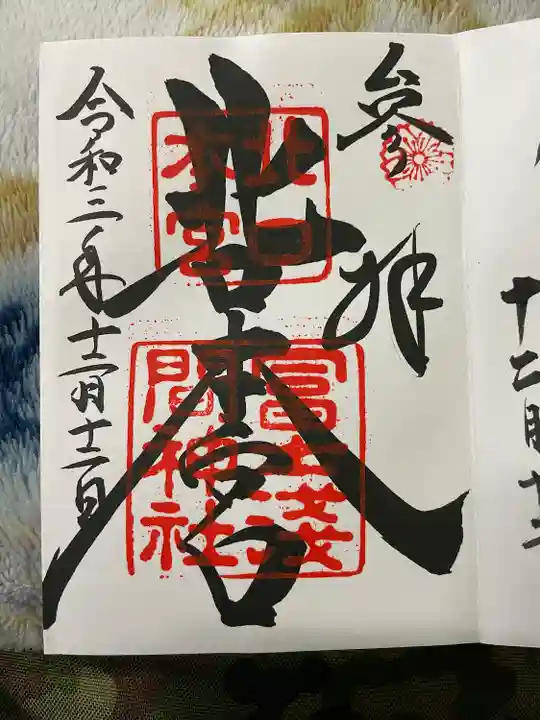 参拝
北口本宮
北口本宮
冨士淺間神社
令和三年十二月十二日
十二月十二